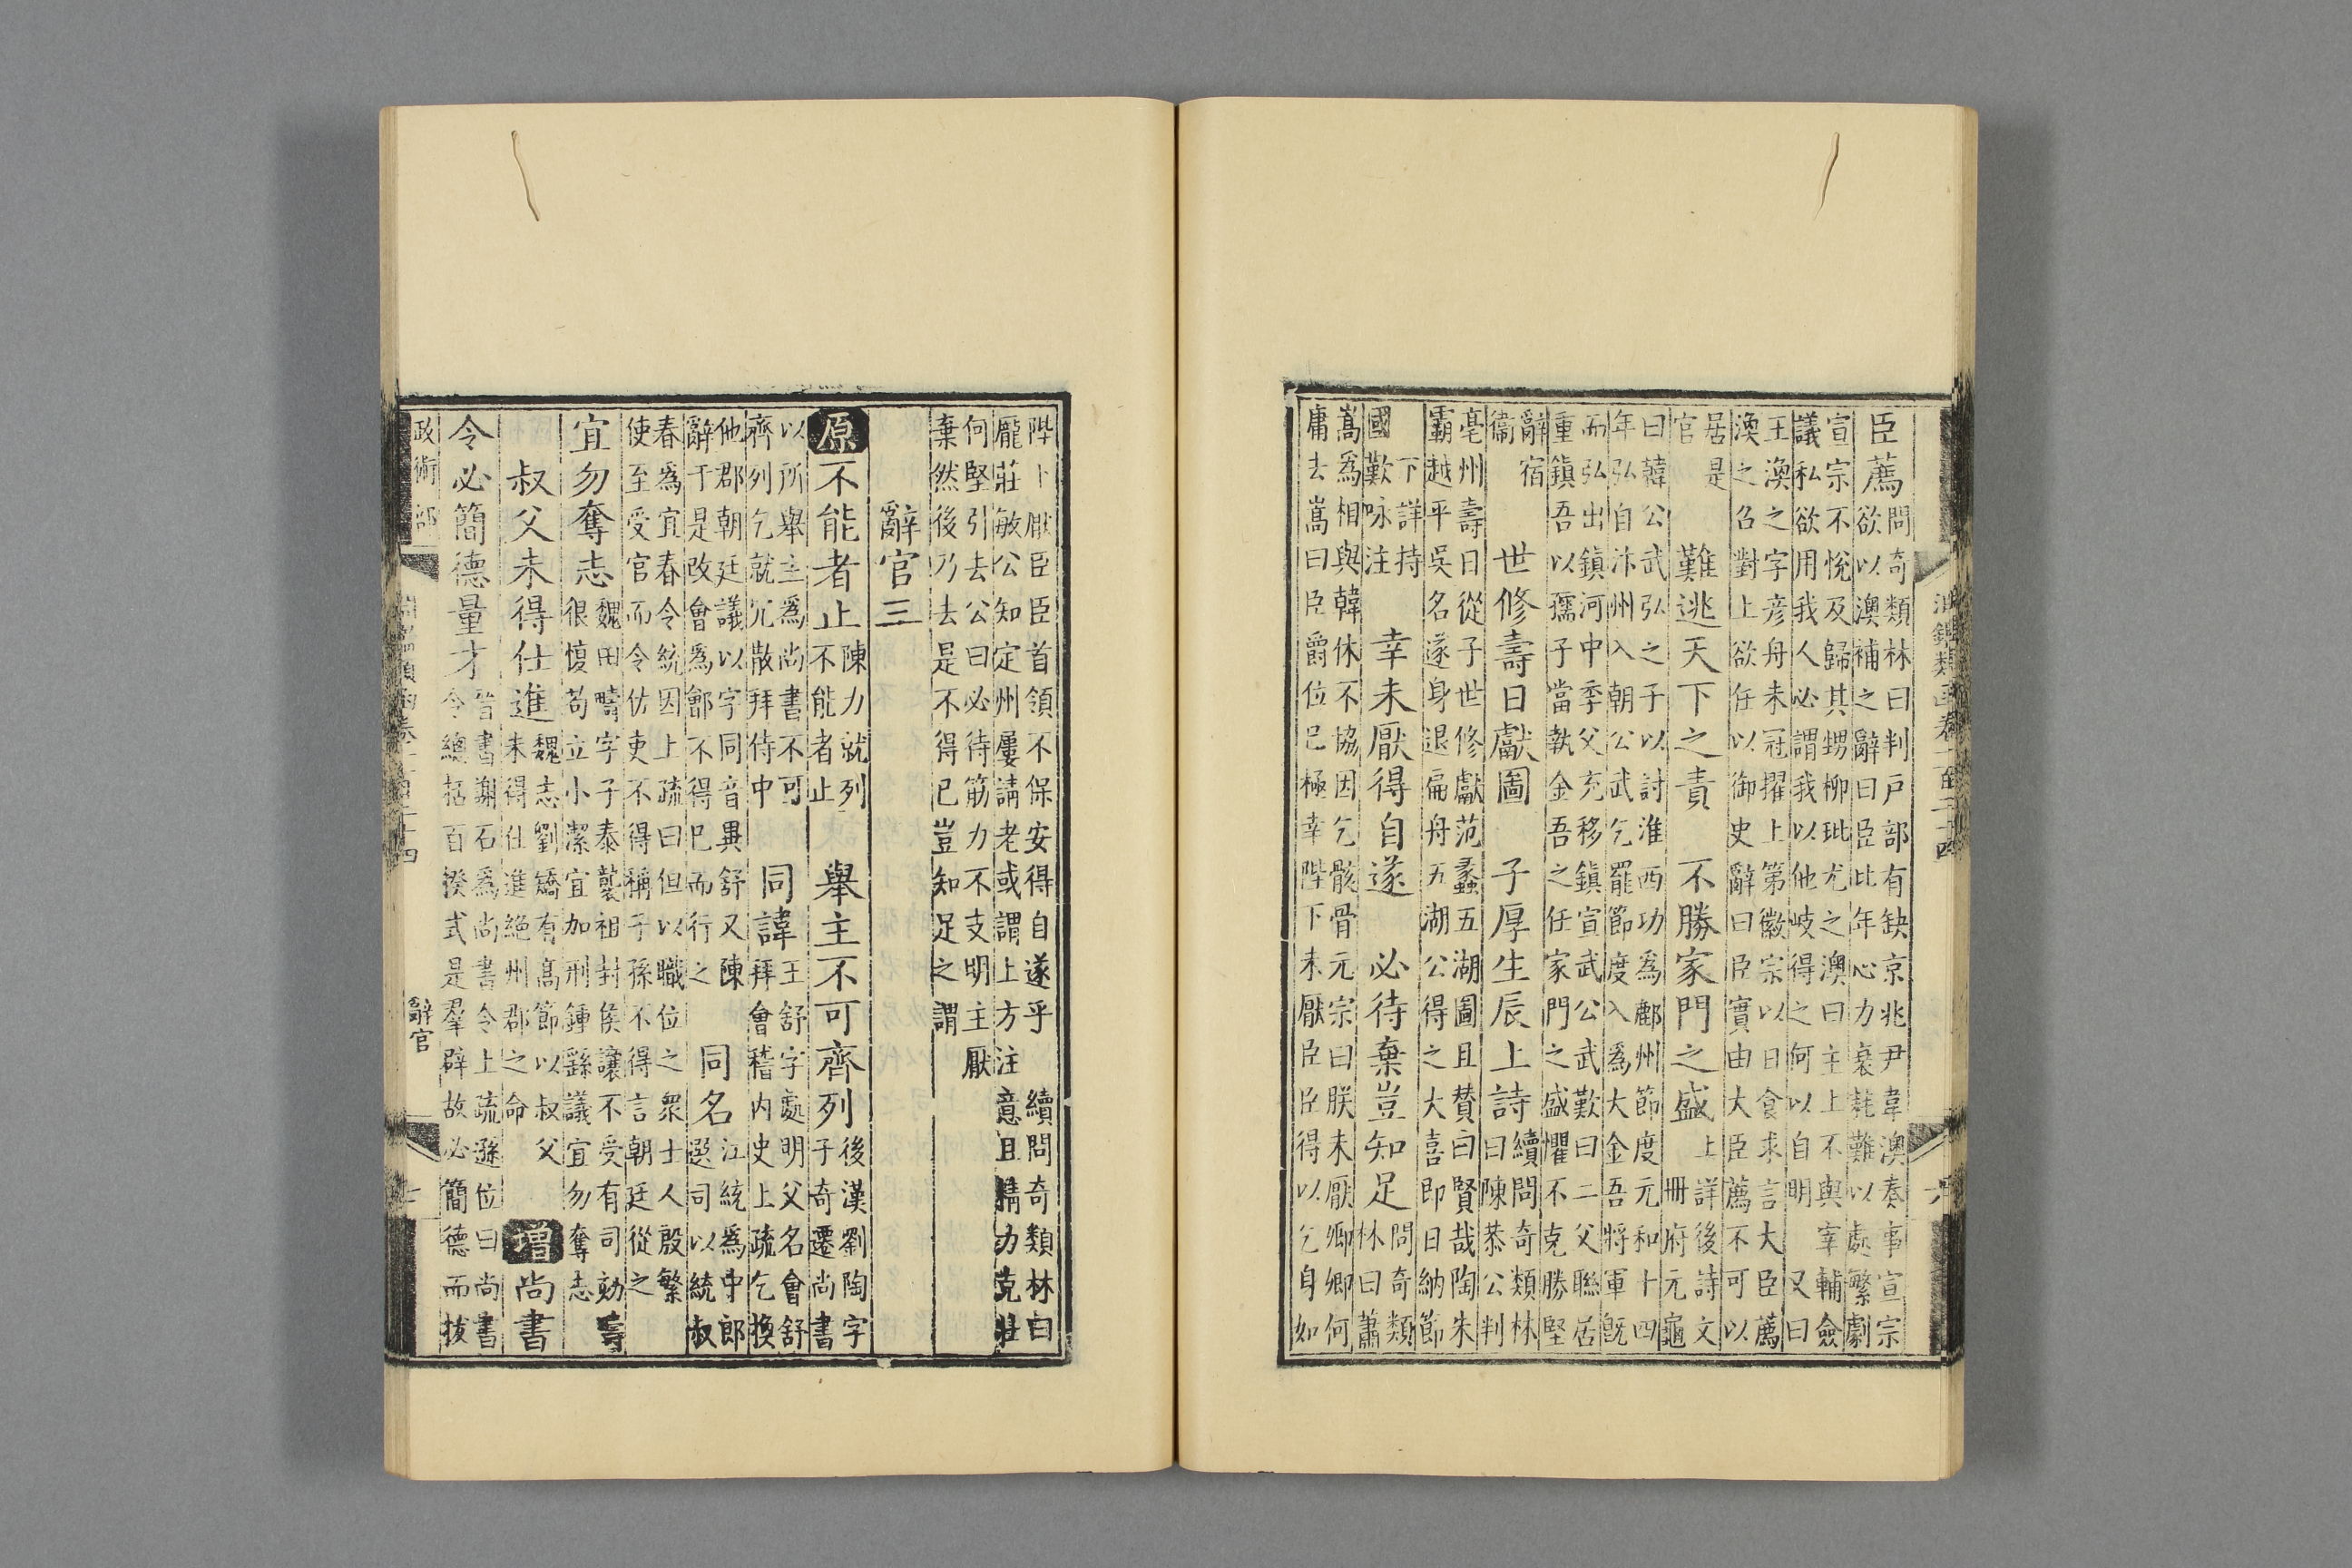 淵鑑類函卷一百二十四 六
臣薦 問奇類林曰判戶部有缺京兆尹韋澳奏事宣宗
欲以澳補之辭曰臣比年心力衰耗難以處繁劇
宣宗不悅及歸其甥柳玭尤之澳曰主上不與宰輔僉
議私欲用我人必謂我以他岐得之何以自明 又曰
王渙之字彦舟未冠擢上第徽宗以日食求言大臣薦
渙之召對上欲任以御史辭曰臣實由大臣薦不可以
居是
官
難逃天下之責 不勝家門之盛
上詳後詩文
冊府元龜
曰韓公武弘之子以討淮西功爲鄜州節度元和十四
年弘自汴州入朝公武乞罷節度入爲大金吾將軍旣
而弘出鎮河中季父充移鎮宣武公武歎曰二父聯居
重鎮吾以孺子當執金吾之任家門之盛懼不克勝堅
辭宿
衞
世修壽日獻圖 子厚生辰上詩
續問奇類林
曰陳恭公判
亳州壽日從子世修獻范蠡五湖圖且贊曰賢哉陶朱
霸越平吳名遂身退扁舟五湖公得之大喜即日納節
下詳持
國歎咏注
幸未厭得自遂 必待棄豈知足
問奇類
林曰蕭
嵩爲相與韓休不協因乞骸骨元宗曰朕未厭卿卿何
庸去嵩曰臣爵位已極幸陛下未厭臣臣得以乞身如
陛下厭臣臣首領不保安得自遂乎 續問奇類林曰
龐莊敏公知定州屢請老或謂上方注意且精力克壯
何堅引去公曰必待筋力不支明主厭
棄然後乃去是不得已豈知足之謂
辭官三
原不能者止
陳力就列
不能者止
舉主不可齊列
後漢劉陶字
子奇遷尚書
以所舉主爲尚書不可
齊列乞就冗散拜侍中
同諱
王舒字處明父名會舒
拜會稽內史上疏乞換
他郡朝廷議以字同音異舒又陳
辭于是改會爲鄶不得已而行之
同名
江統爲中郎
選司以統叔
春爲宜春令統因上疏曰但以職位之衆士人殷繁
使至受官而令佐吏不得稱子孫不得言朝廷從之
宜勿奪志
魏田疇字子泰襲祖封侯讓不受有司劾疇
狠愎苟立小潔宜加刑鍾繇議宜勿奪志
叔父未得仕進
魏志劉矯有高節以叔父
未得仕進絕州郡之命
增尚書
令必簡德量才
晉書謝石爲尚書令上疏遜位曰尚書
令總括百揆式是羣辟故必簡德而拔
政術部 淵鑑類函卷一百二十四 辭官 七